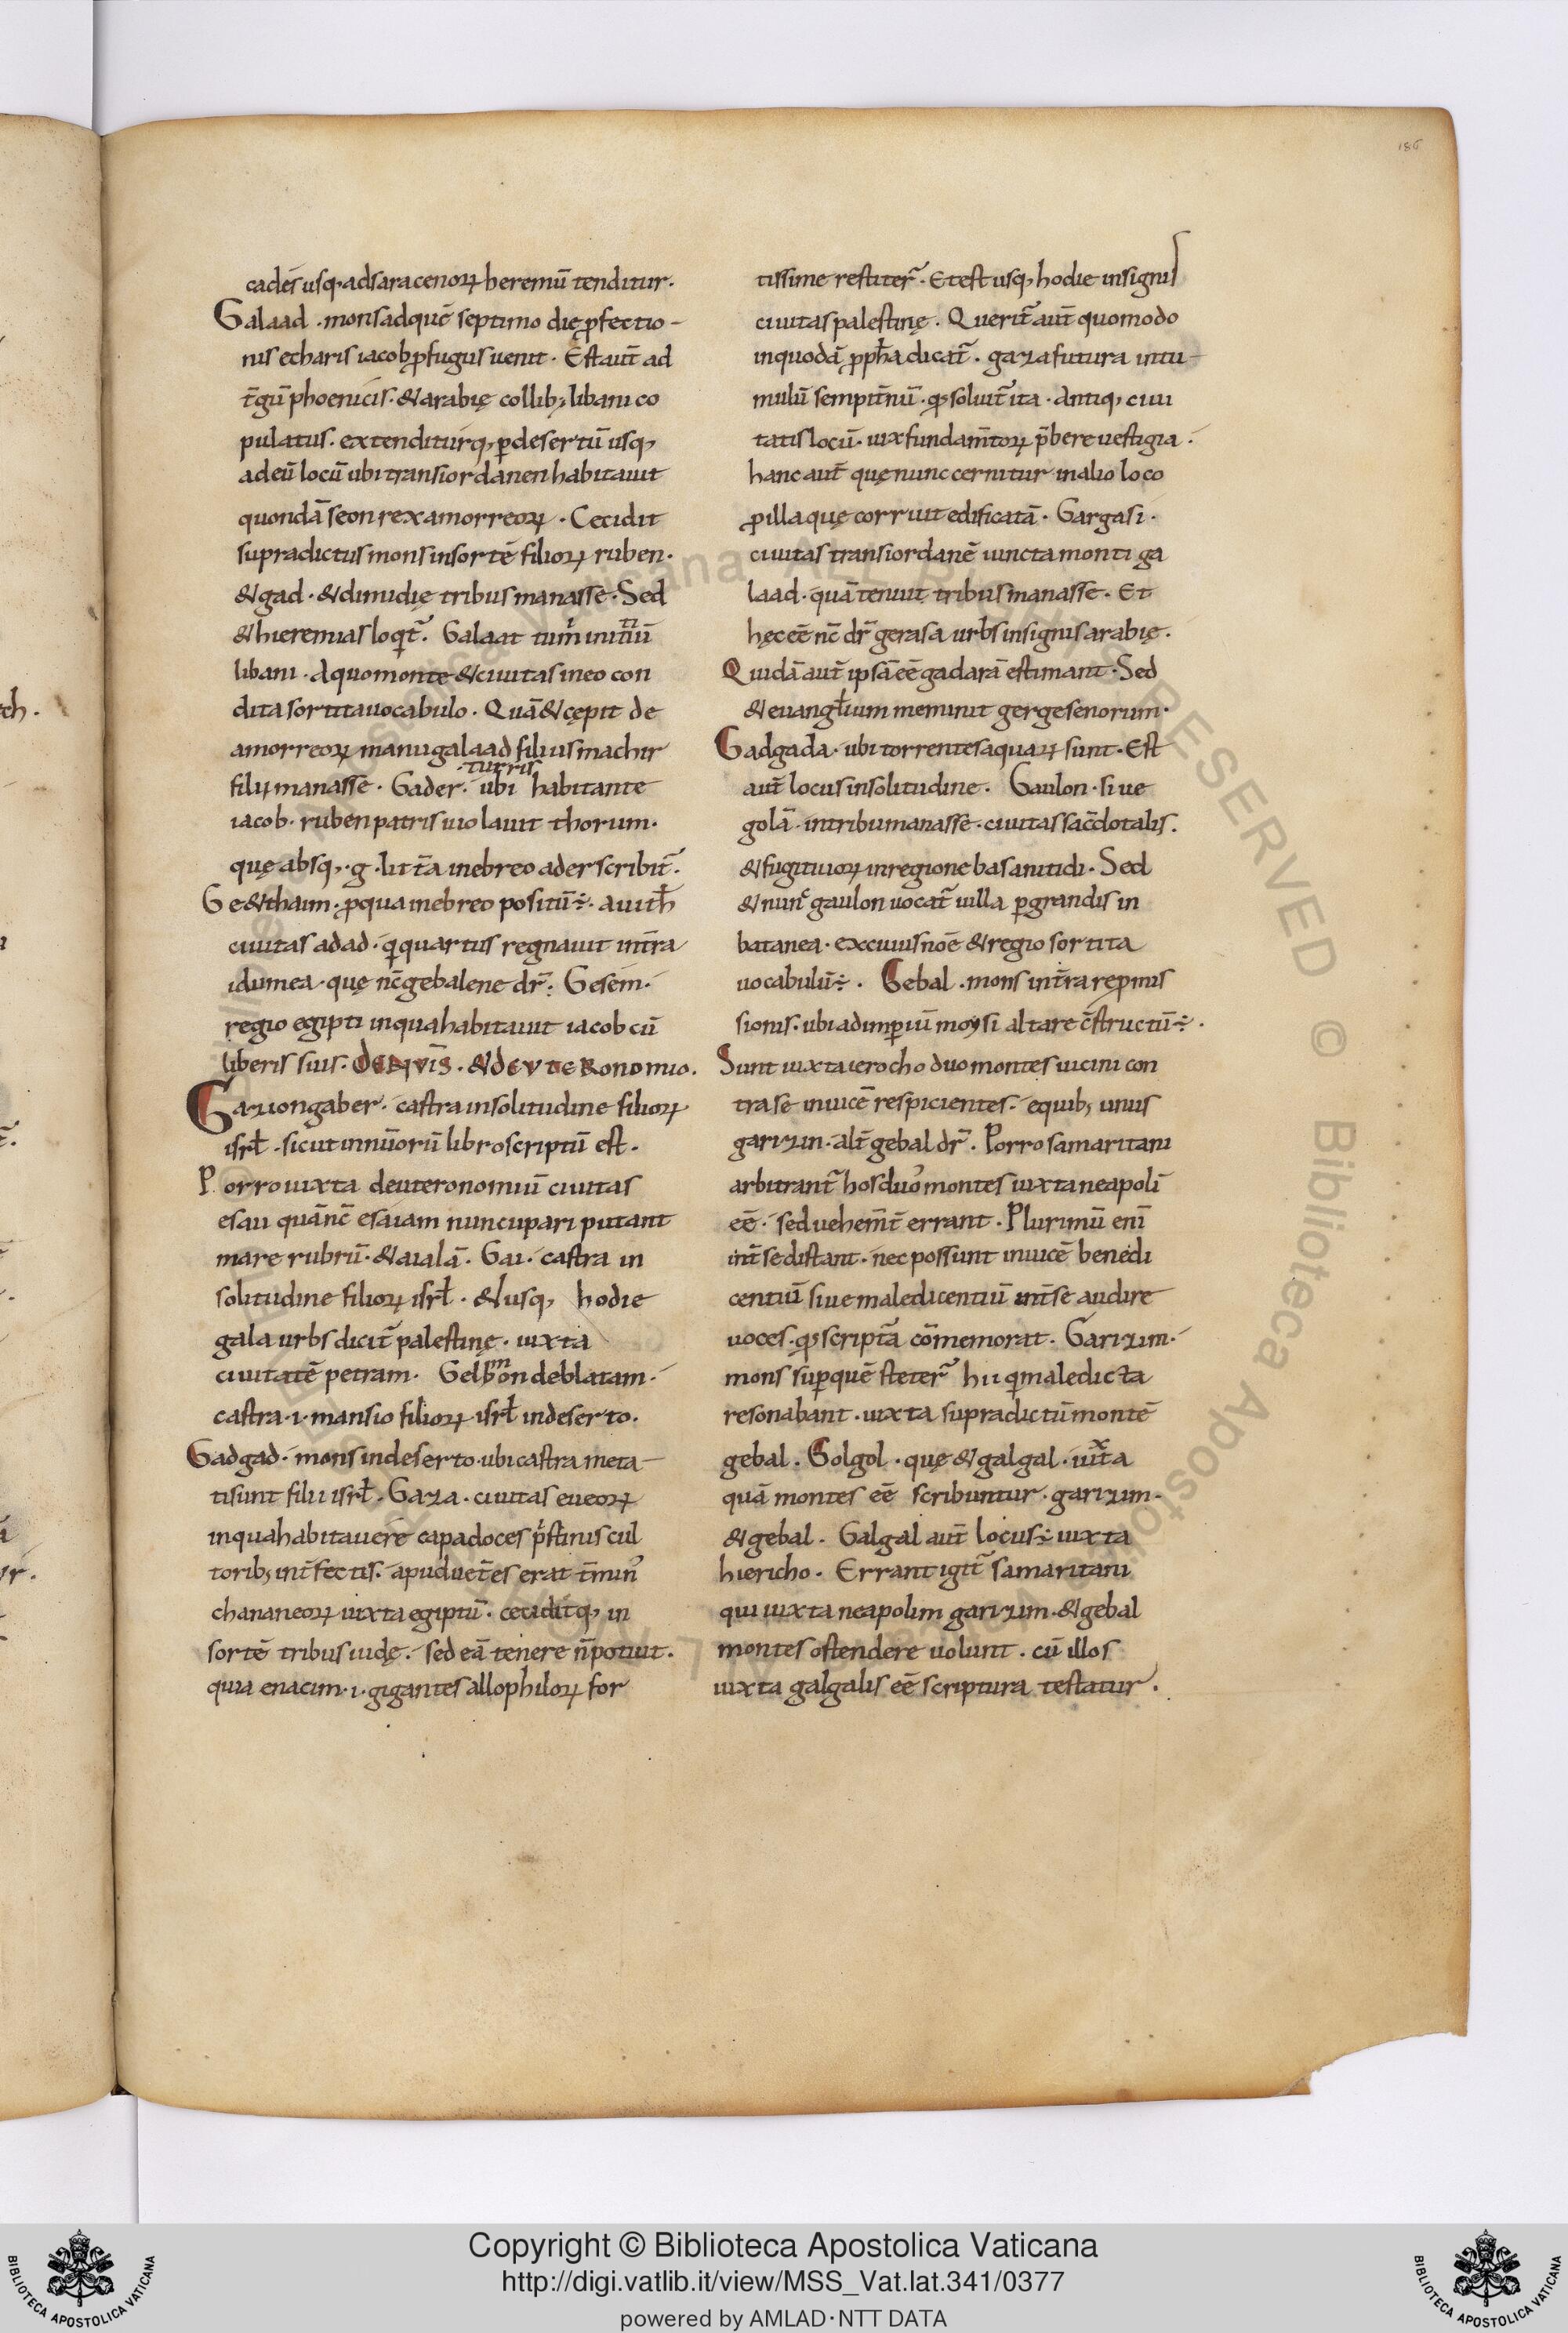 186
cades usq; ad saracenorꝝ heremū tenditur.
Galaad · mons ad quē septimo die ꝓfectio-
nis echaris iacob ꝓfugus uenit · Est aut̄ ad
t̄gū phoenicis · & arabię collib; libani co
pulatus · extenditurq; ꝑ desertū usq;
ad eū locū ubi trans iordanen habitauit
quondā seon rex amorreoꝝ · Cecidit
supradictus mons in sortē filioꝝ ruben ·
& gad · & dimidię tribus manasse · Sed
& hieremias loqt̄ · Galaat tu m̄ initiū
libani · A quo monte & ciuitas in eo con
dita sortita uocabulo · Quā & cępit de
amorreoꝝ manu galaad filius machir
filii manasse · Gader · turris ubi habitante
iacob · ruben patris uiolauit thorum ·
quę absq; · g · litt̄a in ebreo ader scribit̄ ·
Ge&thaim · ꝓ qua in ebreo positū ÷ · auith
ciuitas adad · q quartus regnauit in t̄ra
idumea · quę nc̄ gebalene dr̄ · Gesem ·
regio egipti in qua habitauit iacob cū
liberis suis · DE NVIS · & DEVTERONOMIO.
Gaziongaber · castra in solitudine filioꝝ
isrł · sicut in nūorū libro scriptū est ·
Porro iuxta deuteronomiū ciuitas
esau quā nc̄ esaiam nuncupari putant
mare rubrū · & aialā · Gai · castra in
solitudine filioꝝ isrł · & usq; hodie
gala urbs dicit̄ palestinę · iuxta
ciuitatē petram · Gelbmon deblatam ·
castra · i · mansio filioꝝ isrł in deserto ·
Gadgad · mons in deserto · ubi castra meta-
ti sunt filii isrł · Gaza · ciuitas eueoꝝ
in qua habitauere capadoces p̄stinis cul
torib; int̄fectis · apud uet̄es erat t̄min᷒
chananeoꝝ iuxta egiptū · ceciditq; in
sortē tribus iudę · sed eā tenere n̄ potuit ·
quia enacim · i · gigantes allophiloꝝ for
tissime restiter̄ · Et est usq; hodie insignis
ciuitas palestinę · Querit̄ aut̄ quomodo
in quodā ꝓpha dicat̄ · gaza futura in tu-
mulū sempit̄nū · qđ soluit̄ ita · Antiq; ciui
tatis locū · uix fundam̄toꝝ p̄bere uestigia ·
hanc aut̄ quę nunc cernitur in alio loco
ꝓ illa quę corruit edificatā · Gargasi ·
ciuitas trans iordanē iuncta monti ga
laad · quā tenuit tribus manasse · Et
hęc eē nc̄ dr̄ gerasa urbs insignis arabię ·
Quidā aut̄ ipsā eē gadarā estimant · Sed
& euangłium meminit gergesenorum ·
Gadgada · ubi torrentes aquaꝝ sunt · Est
aut̄ locus in solitudine · Gaulon · siue
golā · in tribu manasse · ciuitas sac̄dotalis ·
& fugitiuoꝝ in regione basanitidi · Sed
& nunc gaulon uocat̄ uilla ꝑgrandis in
batanea · ex cuius noē & regio sortita
uocabulū ÷ · Gebal · mons in t̄ra repmis
sionis · ubi ad imperiū moysi altare c̄structū ÷ ·
Sunt iuxta ierocho duo montes uicini con
tra se inuicē respicientes · e quib; unus
garizin · alt̄ gebal dr̄ · Porro samaritani
arbitrant̄ hos duo montes iuxta neapolī
eē · sed uehem̄t errant · Plurimū enī
int̄ se distant · nec possunt inuicē benedi
centiū siue maledicentiū int̄ se audire
uoces · qđ scriptā cōmemorat · Garizim ·
mons sup quē steter̄ hii q maledicta
resonabant · iuxta supradictū montē
gebal · Golgol · quę & galgal · iuxta
quā montes eē scribuntur · garizim ·
& gebal · Galgal aut̄ locus ÷ iuxta
hiericho · Errant igit̄ samaritani
qui iuxta neapolim garizim · & gebal
montes ostendere uolunt · cū illos
iuxta galgalis eē scriptura testatur ·
Copyright © Biblioteca Apostolica Vaticana
http://digi.vatlib.it/view/MSS_Vat.lat.341/0377
powered by AMLAD·NTT DATA